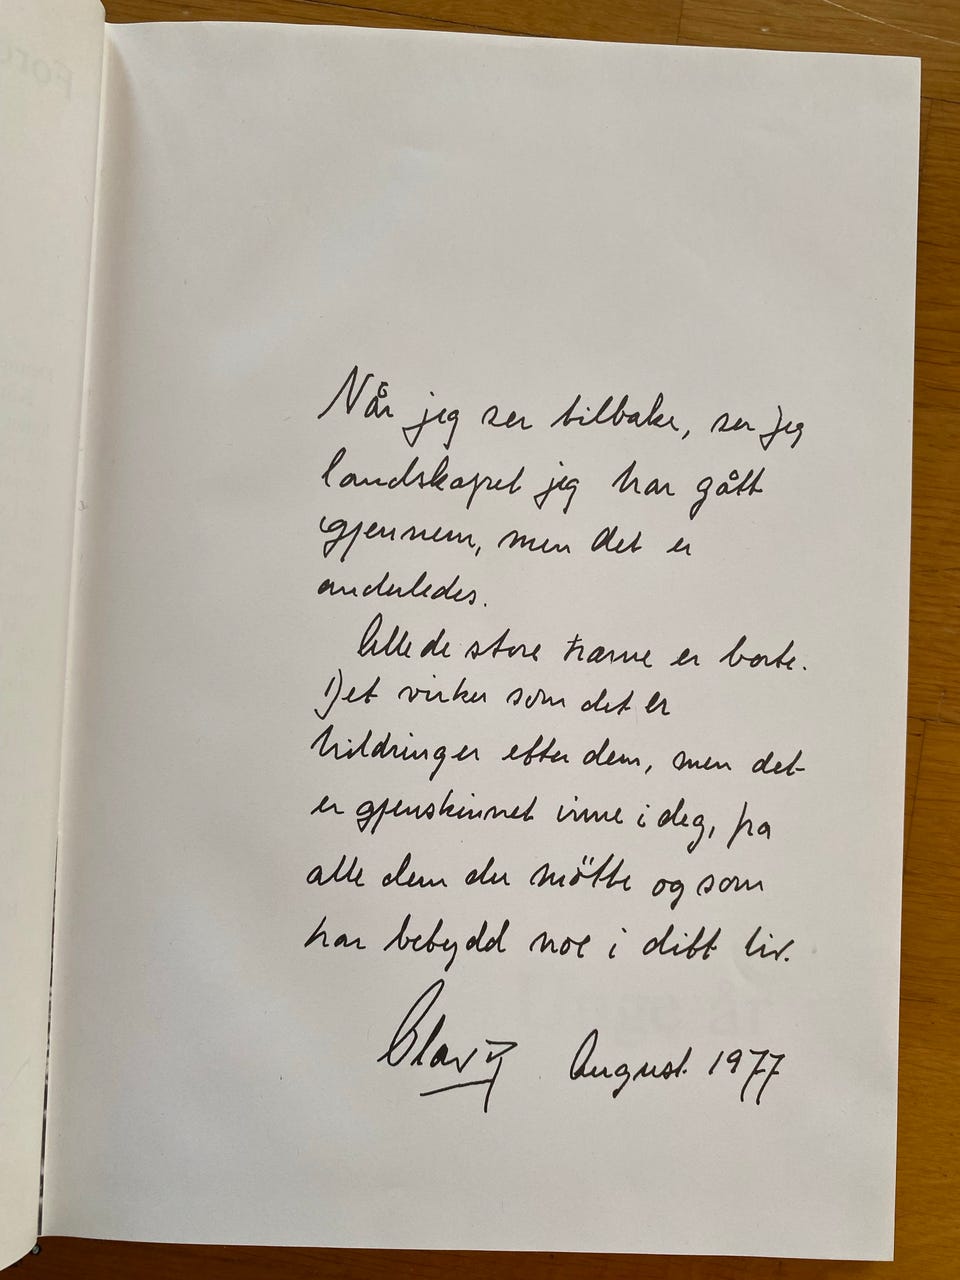 Når jeg ser tilbake, ser jeg
landskapet jeg har gått
gjennem, men det er
anderledes.
Alle de store trærne er borte.
Det virker som det er
hildringer efter dem, men det
er gjenskinnet inne i deg, fra
alle dem du møtte og som
har betydd noe i ditt liv.
Olav R August 1977
Unge år
For